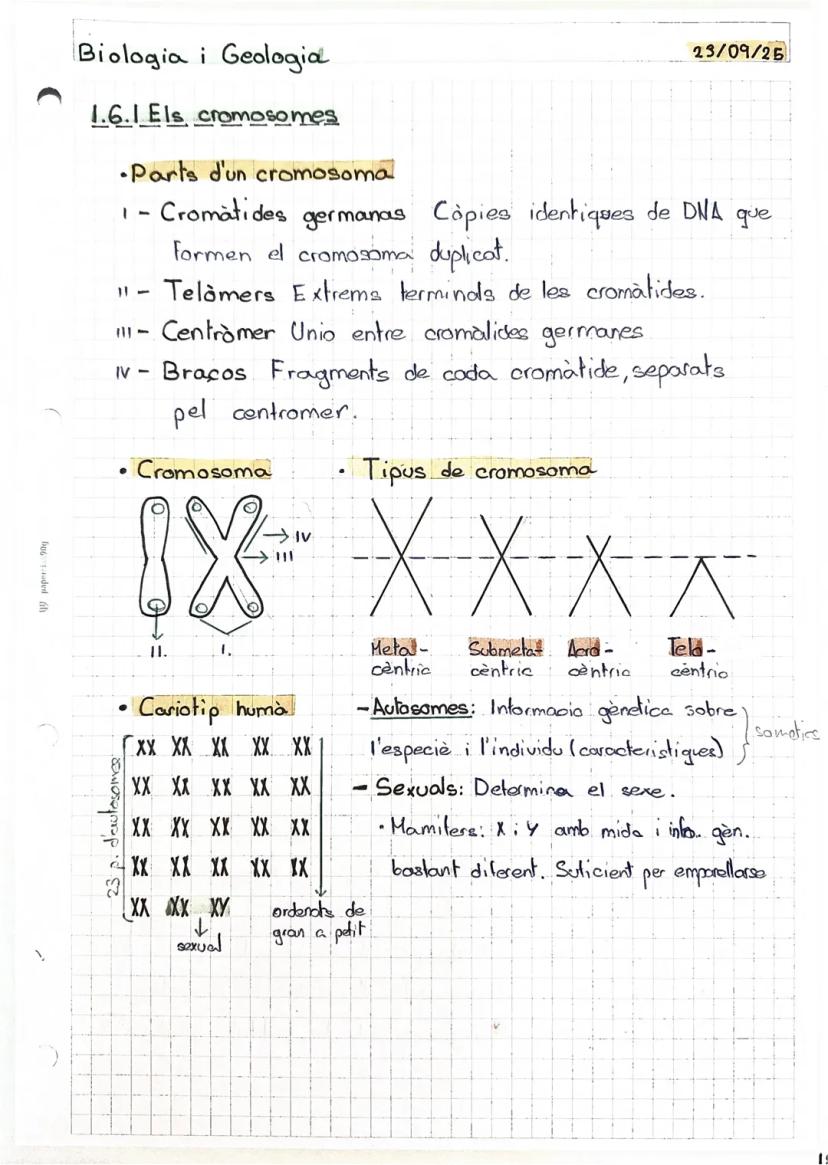 Biologia i Geologia
23/09/25
1.6.1 Els cromosomes
• Parts d'un cromosoma
I - Cromàtides germanas Còpies identiques de DNA que
formen el cromosoma duplicat.
II - Telòmers Extrems terminals de les cromàtides.
III - Centròmer Unio entre cromàtides germanes
IV - Braços Fragments de cada cromàtide, separats
pel centromer.
• Cromosoma
• Tipus de cromosoma
IV
III
II.
I.
Meta-
cèntric
Submeta-
cèntric
Acro-
cèntric
Telo-
cèntric
• Cariotip humà
XX XX XX XX XX
XX XX XX XX XX
XX XX XX XX XX
XX XX XX XX XX
XX XX XY
23 p. d'autosomes
sexual
ordenats de
gran a petit
- Autosomes: Informacio gènetica sobre
l'especiè i l'individu (caracteristiques)
somatics
- Sexuals: Determina el sexe.
• Mamifers: X i Y amb mida i info. gèn.
bastant diferent. Suficient per emparellarse
paper
90g